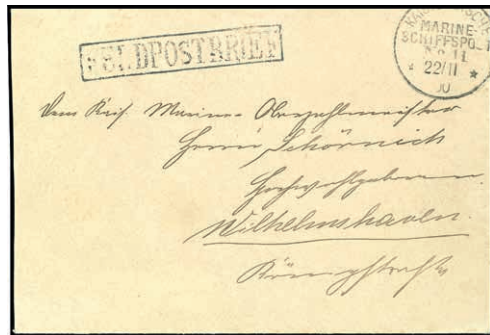 FELDPOSTBRIEF
KAIS. DEUTSCHE
MARINE-
SCHIFFSPOST
No 11
* 22/11 *
00
Dem Kais. Marine-Oberzahlmeister
Herrn Schörnich
Hochwohlgeboren
Wilhelmshaven.
Königstraße